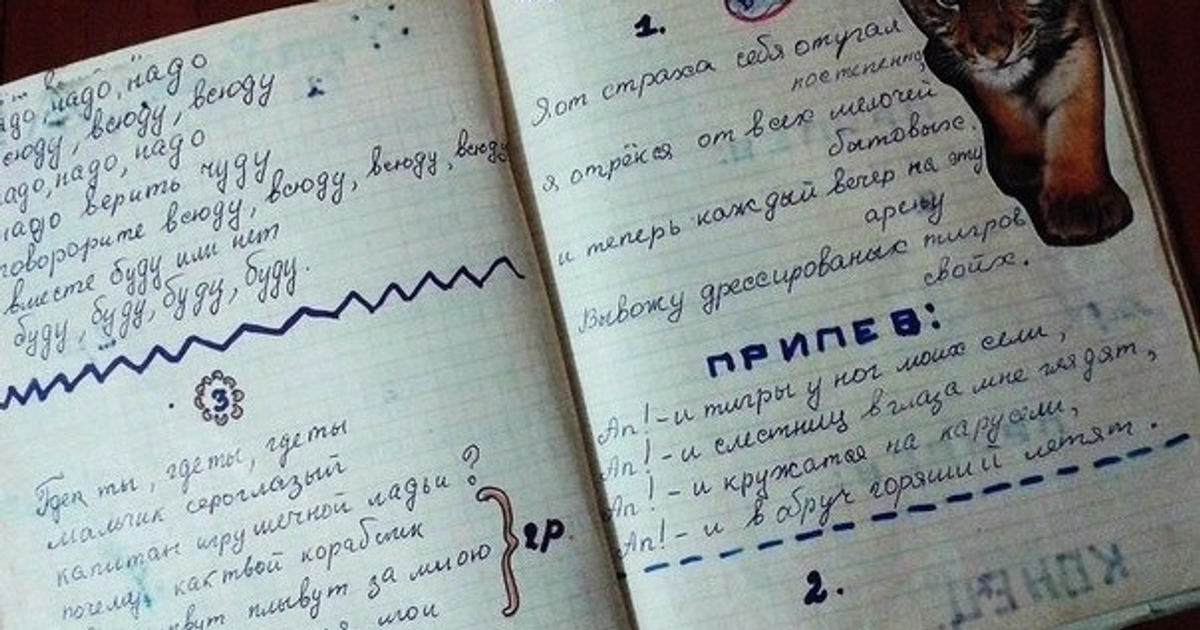 надо, надо
всюду, всюду
надо, надо, надо
надо верить чуду
говорите всюду, всюду, всюду, всюду
вместе буду или нет
буду, буду, буду, буду.
3
Где ты, где ты, где ты
мальчик сероглазый
капитан игрушечной ладьи?
почему как твой кораблик
плывут за мною
мои
2р.
1.
Я от страха себя отугал
постепенно
я отрёкся от всех мелочей
бытовых.
и теперь каждый вечер на эту
арену
Вывожу дрессированых тигров
свойх.
ПРИПЕВ:
Ап! - и тигры у ног моих сели,
Ап! - и с лестниц в глаза мне глядят,
Ап! - и кружатся на карусели,
Ап! - и в обруч горящий летят.
2.
КОНЕЦ